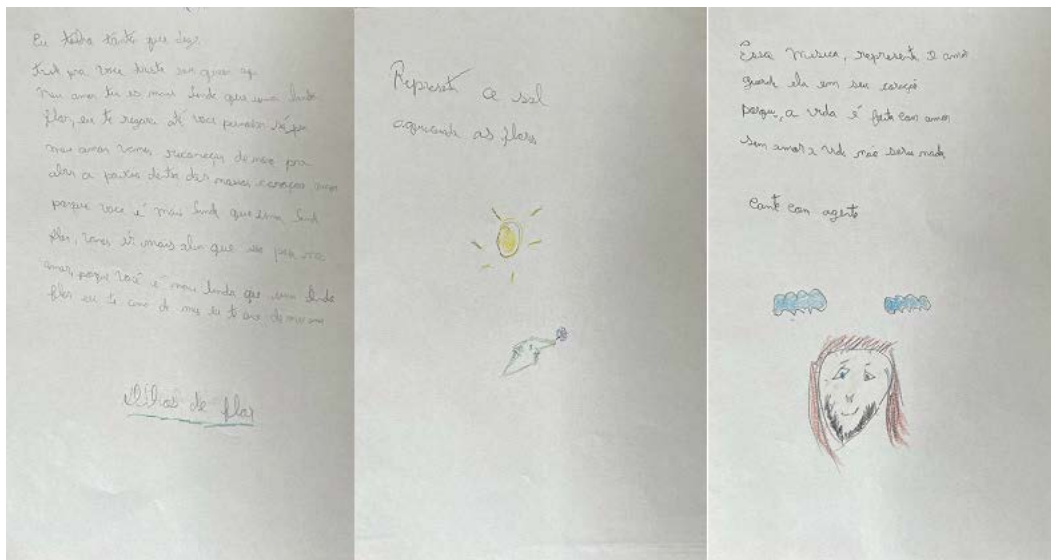 Eu tenho tanto que dizer
pra voce
meu amor tu es mais linda que uma linda
flor, eu te regare ate voce
meu amor vamos recomeçar de novo pra
abrir a paixão dentro dos nossos corações
porque voce é mais linda que uma linda
flor, vamos ir mais alem que
amor, porque você é mais linda que uma linda
flor eu te amo de mais eu te amo de mais
Olhos de flor
Represent o sol
aquecendo as flores
Essa musica, represent o amor
guard ela em seu coração
porque, a vida é feita com amor
sem amor a vida não seria nada
Cant com agente